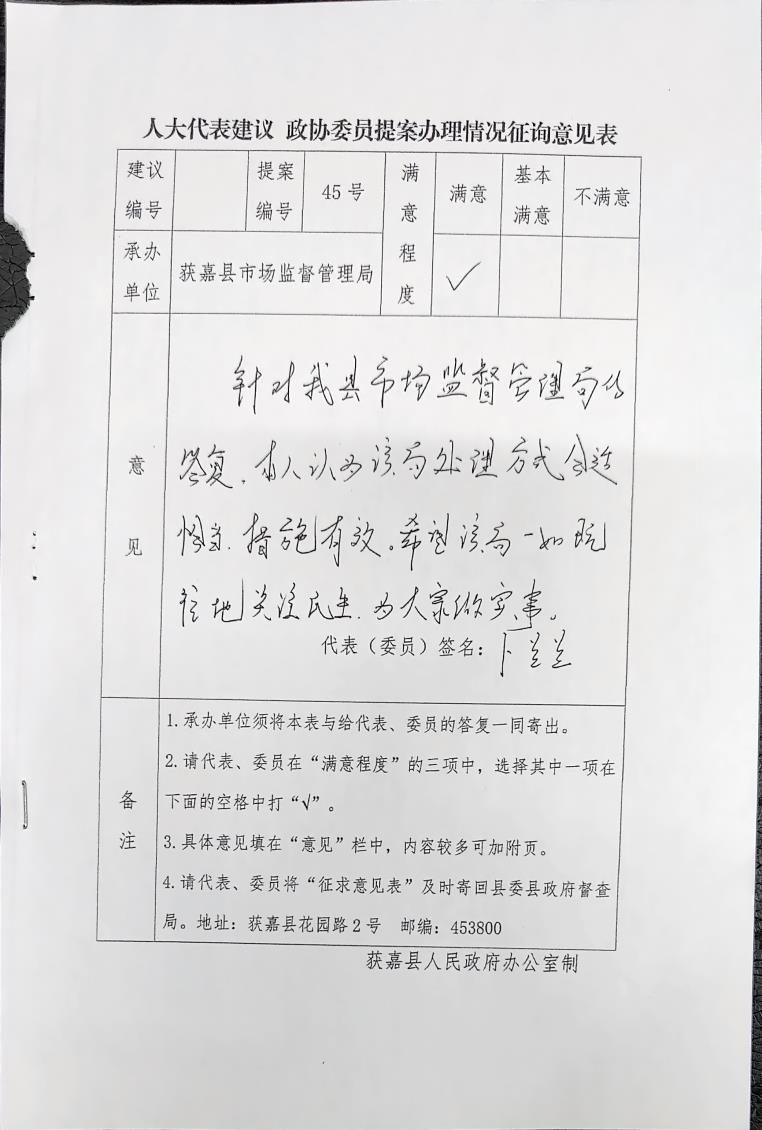 人大代表建议 政协委员提案办理情况征询意见表
建议编号 提案编号 45号 满意程度 满意 基本满意 不满意
承办单位 获嘉县市场监督管理局 ✓
意见
针对我县市场监督管理局的
答复,本人认为该局处理方式合适
恰当,措施有效。希望该局一如既
往地关注民生,为大家做实事。
代表(委员)签名:卜兰兰
备注
1.承办单位须将本表与给代表、委员的答复一同寄出。
2.请代表、委员在“满意程度”的三项中,选择其中一项在
下面的空格中打“√”。
3.具体意见填在“意见”栏中,内容较多可加附页。
4.请代表、委员将“征求意见表”及时寄回县委县政府督查
局。地址:获嘉县花园路2号 邮编:453800
获嘉县人民政府办公室制